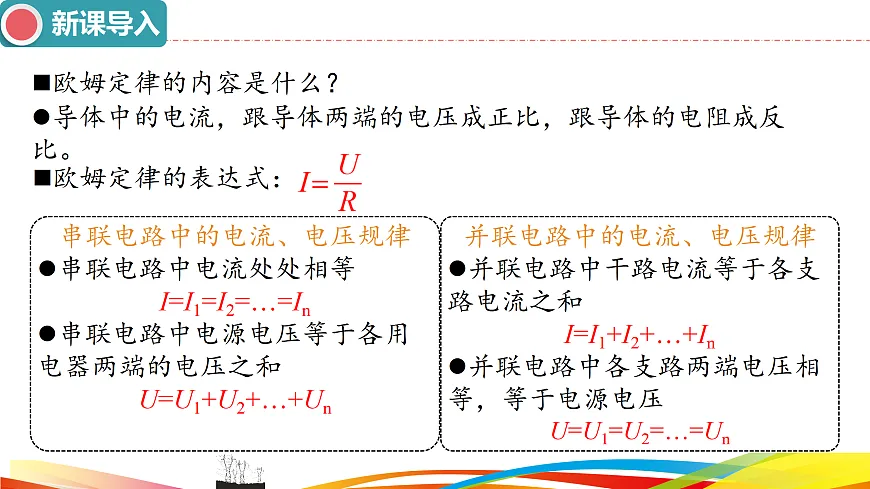 新课导入
■欧姆定律的内容是什么？
●导体中的电流，跟导体两端的电压成正比，跟导体的电阻成反
比。
■欧姆定律的表达式：I=U/R
串联电路中的电流、电压规律
●串联电路中电流处处相等
I=I₁=I₂=…=Iₙ
●串联电路中电源电压等于各用
电器两端的电压之和
U=U₁+U₂+…+Uₙ
并联电路中的电流、电压规律
●并联电路中干路电流等于各支
路电流之和
I=I₁+I₂+…+Iₙ
●并联电路中各支路两端电压相
等，等于电源电压
U=U₁=U₂=…=Uₙ